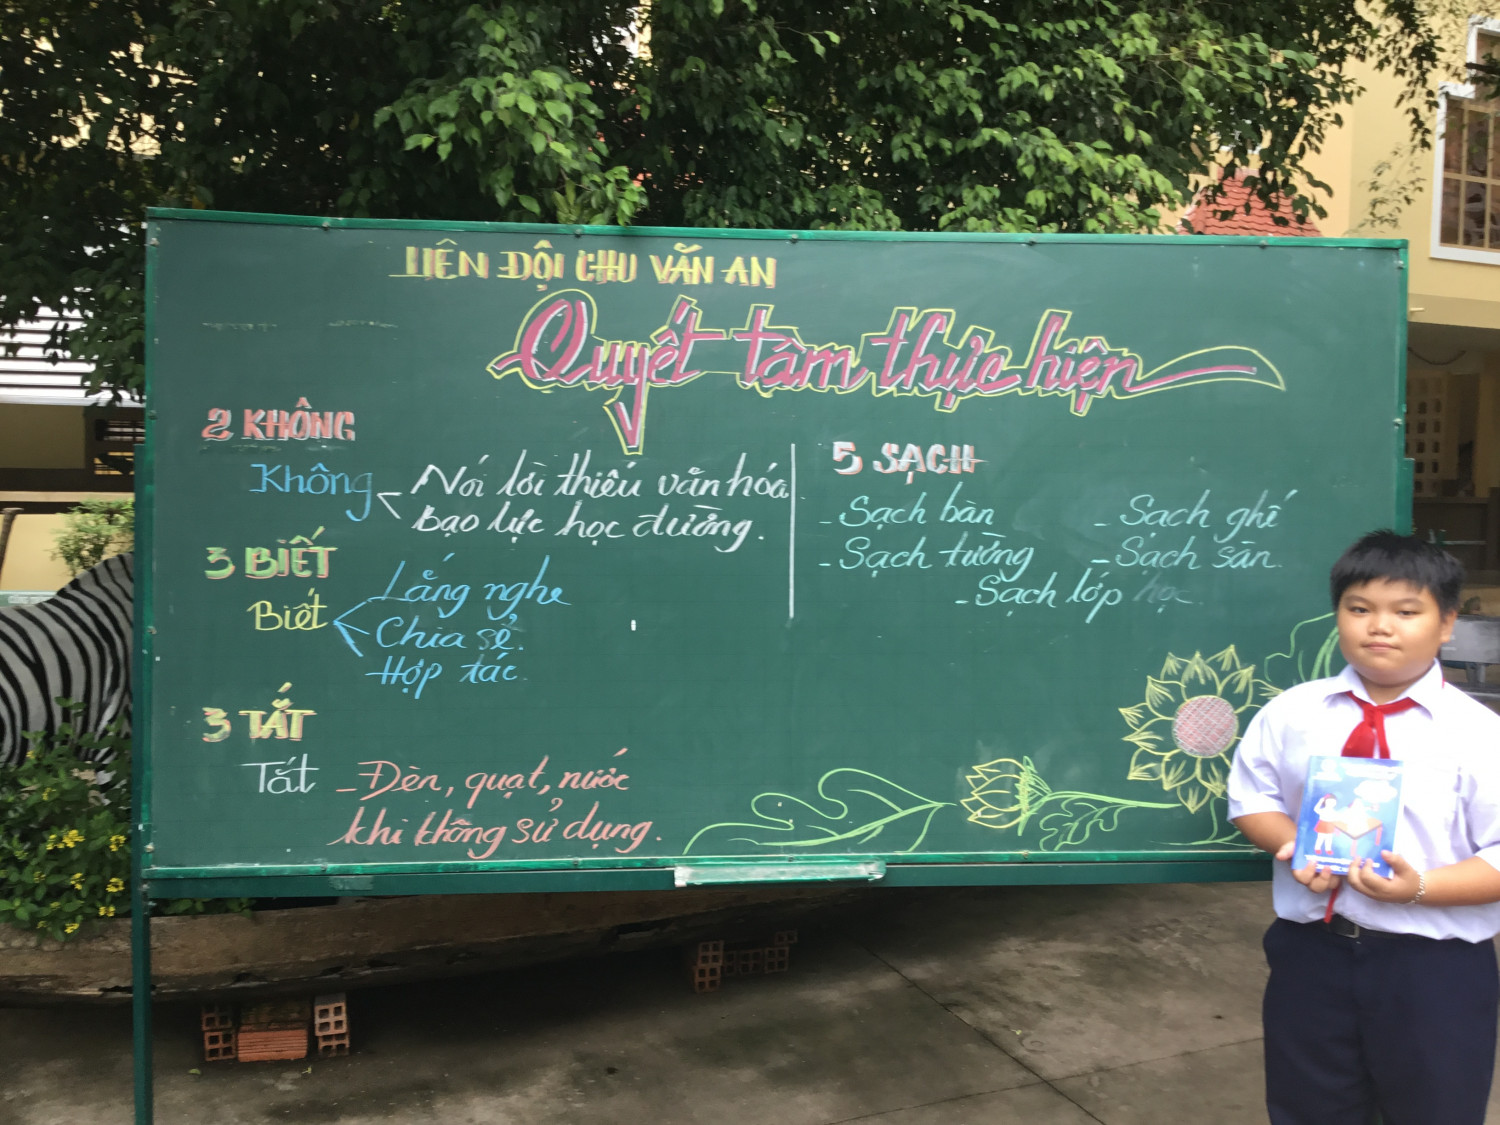 LIÊN ĐỘI CHU VĂN AN
Quyết tâm thực hiện
2 KHÔNG
Không
Nói lời thiếu văn hóa
Bạo lực học đường.
3 BIẾT
Biết
Lắng nghe
Chia sẻ.
Hợp tác.
3 TẮT
Tắt - Đèn, quạt, nước
khi không sử dụng.
5 SẠCH
- Sạch bàn - Sạch ghế
- Sạch tường - Sạch sàn.
- Sạch lớp học.